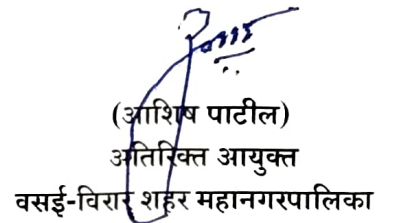 (आशिष पाटील)
अतिरिक्त आयुक्त
वसई-विरार शहर महानगरपालिका